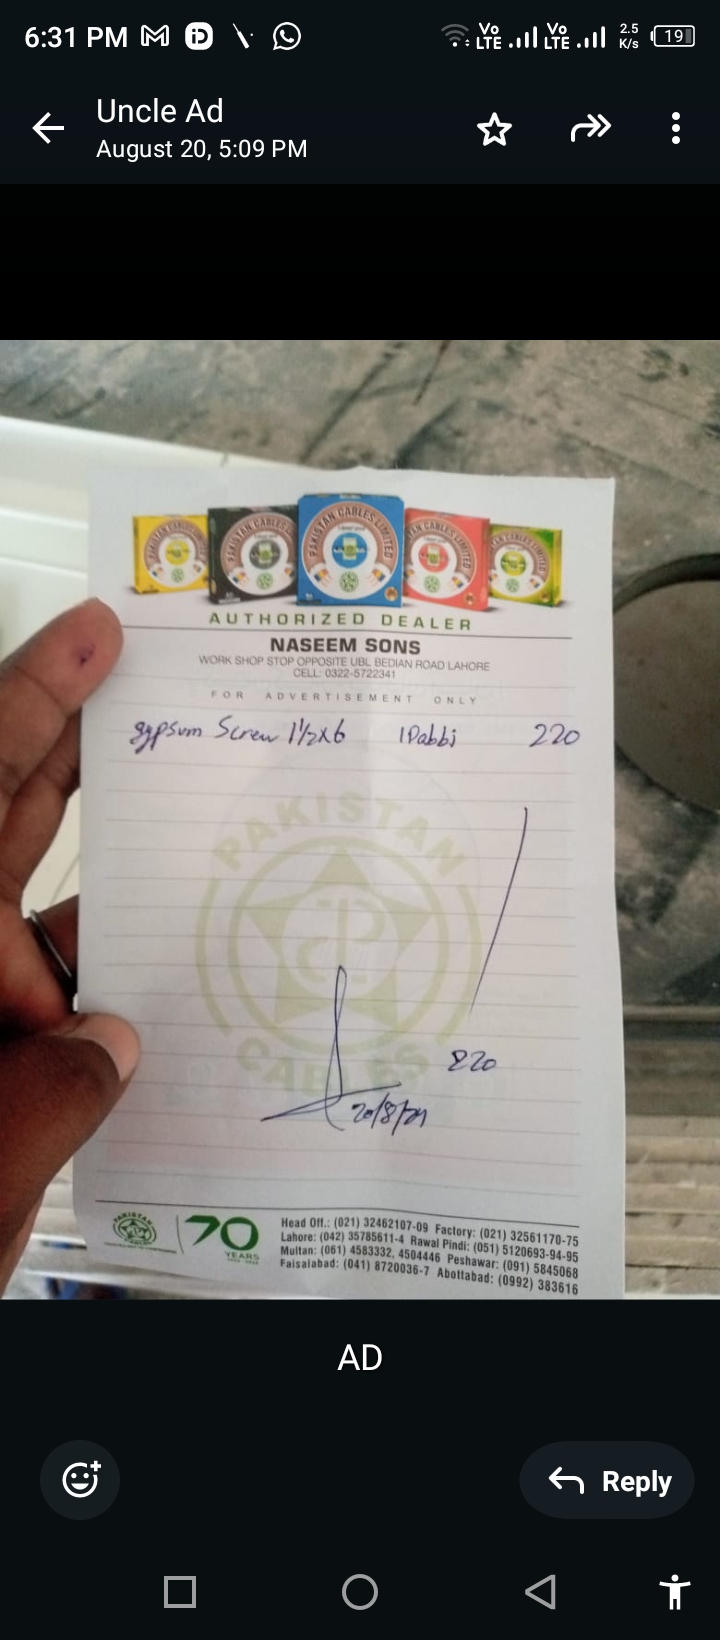 6:31 PM
Vo LTE Vo LTE 2.5 K/s 19
Uncle Ad
August 20, 5:09 PM
PAKISTAN CABLES LIMITED
AUTHORIZED DEALER
NASEEM SONS
WORK SHOP STOP OPPOSITE UBL BEDIAN ROAD LAHORE
CELL: 0322-5722341
FOR ADVERTISEMENT ONLY
gypsum Screw 1½x6 1Dabbi 220
PAKISTAN
CABLES
220
20/8/
PAKISTAN
70
YEARS
Head Off.: (021) 32462107-09 Factory: (021) 32561170-75
Lahore: (042) 35785611-4 Rawal Pindi: (051) 5120693-94-95
Multan: (061) 4583332, 4504446 Peshawar: (091) 5845068
Faisalabad: (041) 8720036-7 Abottabad: (0992) 383616
AD
Reply